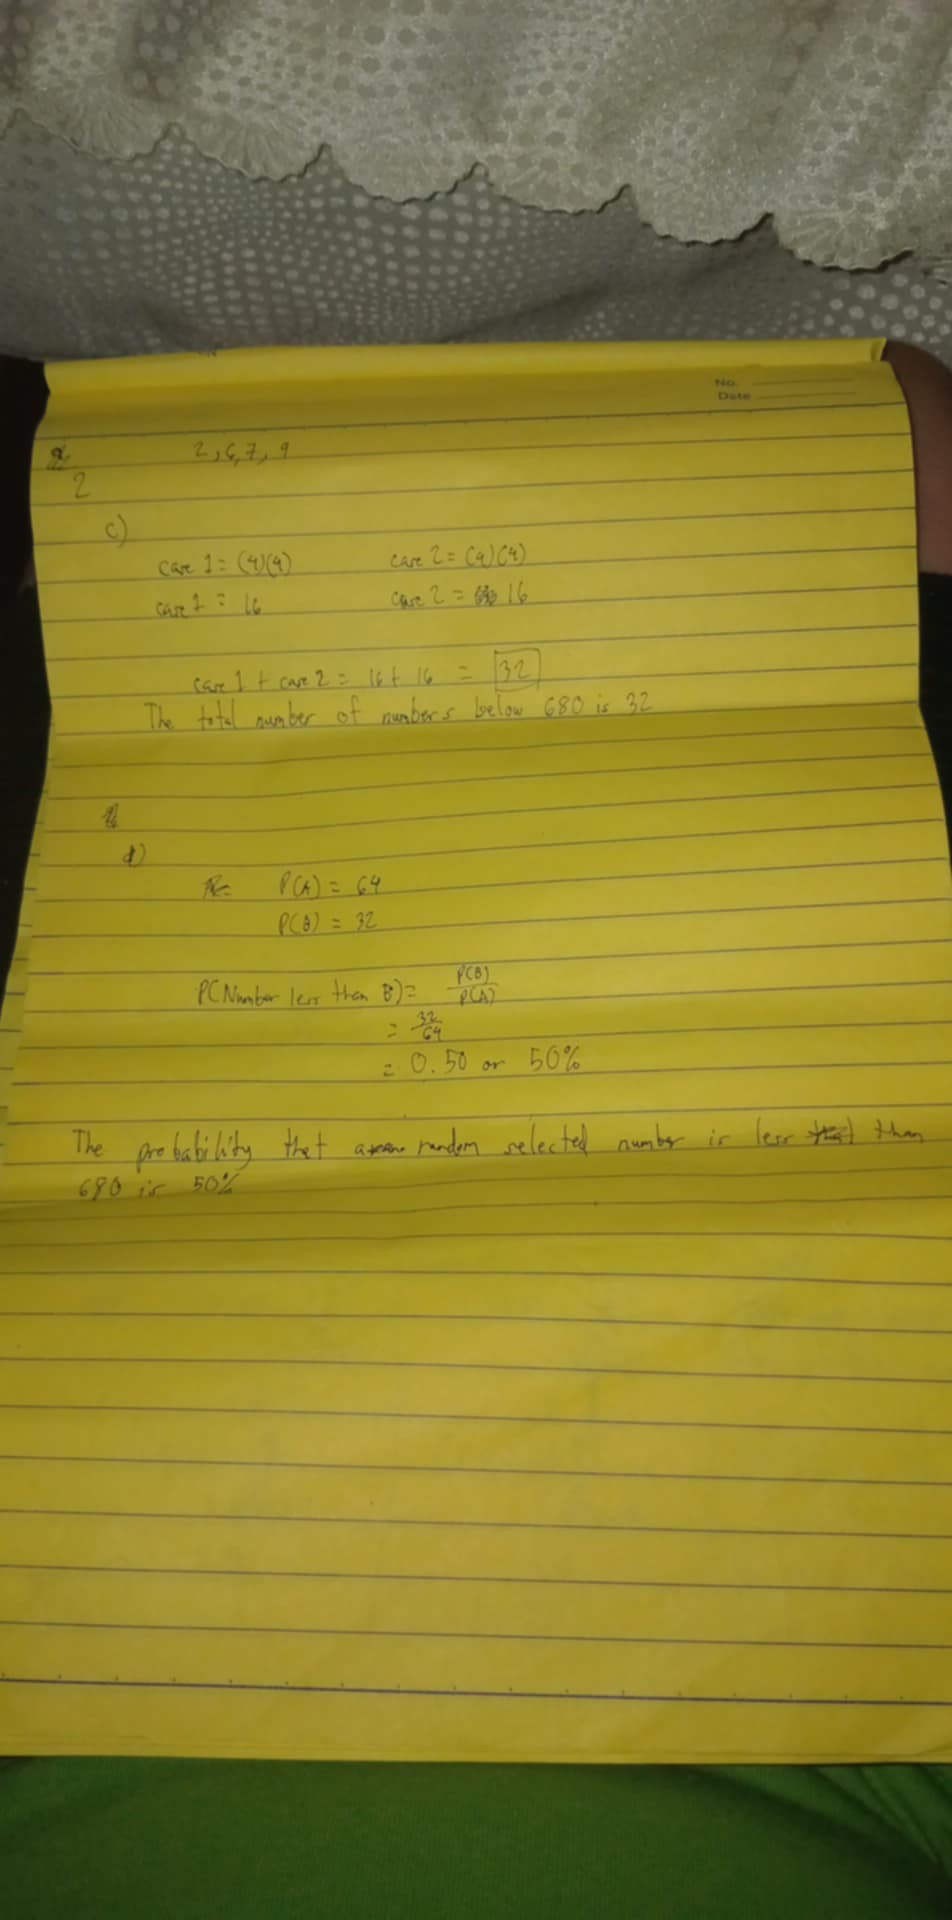 No.
Date
2, 6, 7, 9
2
c)
case 1 = (4)(4) case 2 = (4)(4)
case 1 = 16 case 2 = 16
case 1 + case 2 = 16 + 16 = 32
The total number of numbers below 680 is 32
d)
P(A) = 64
P(B) = 32
P(Number less than B) = P(B)/P(A)
= 32/64
= 0.50 or 50%
The probability that a random selected number is less than
680 is 50%